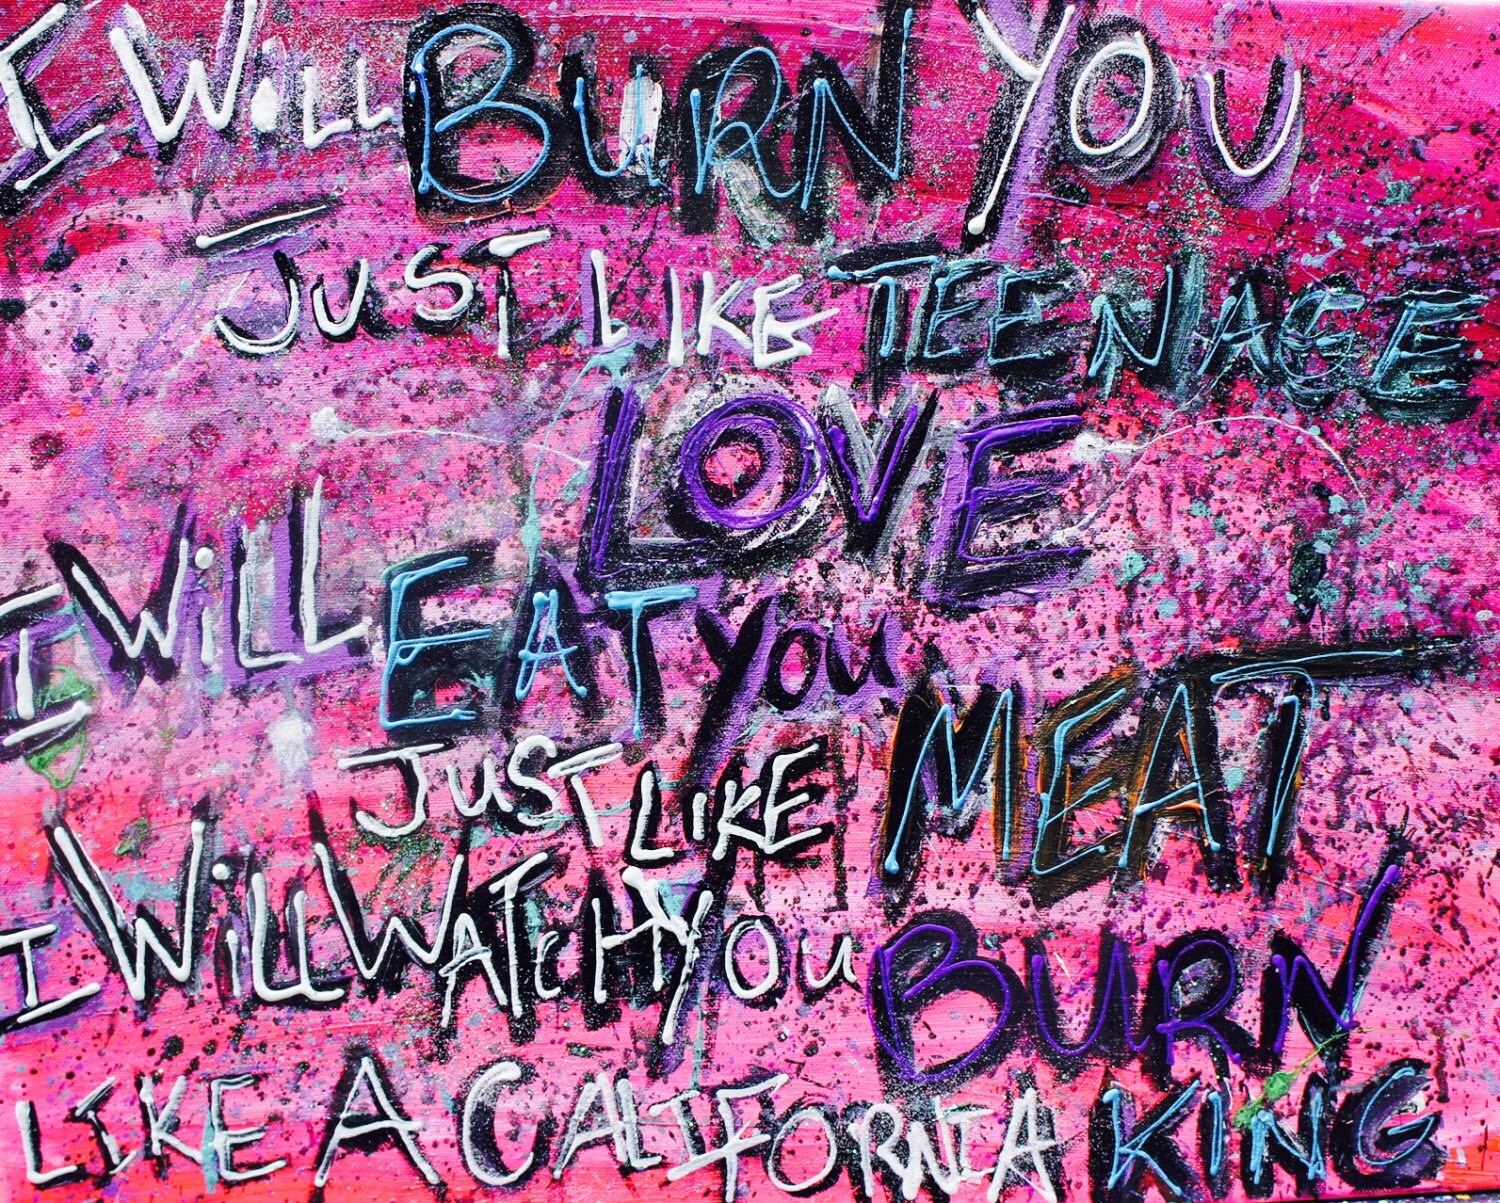 I WiLL BURN YOU
JUST LIKE TEENAGE
LOVE
I WiLL EAT YOU MEAT
JUST LIKE
I WiLL WATCH YOU BURN
LIKE A CALIFORNIA KING